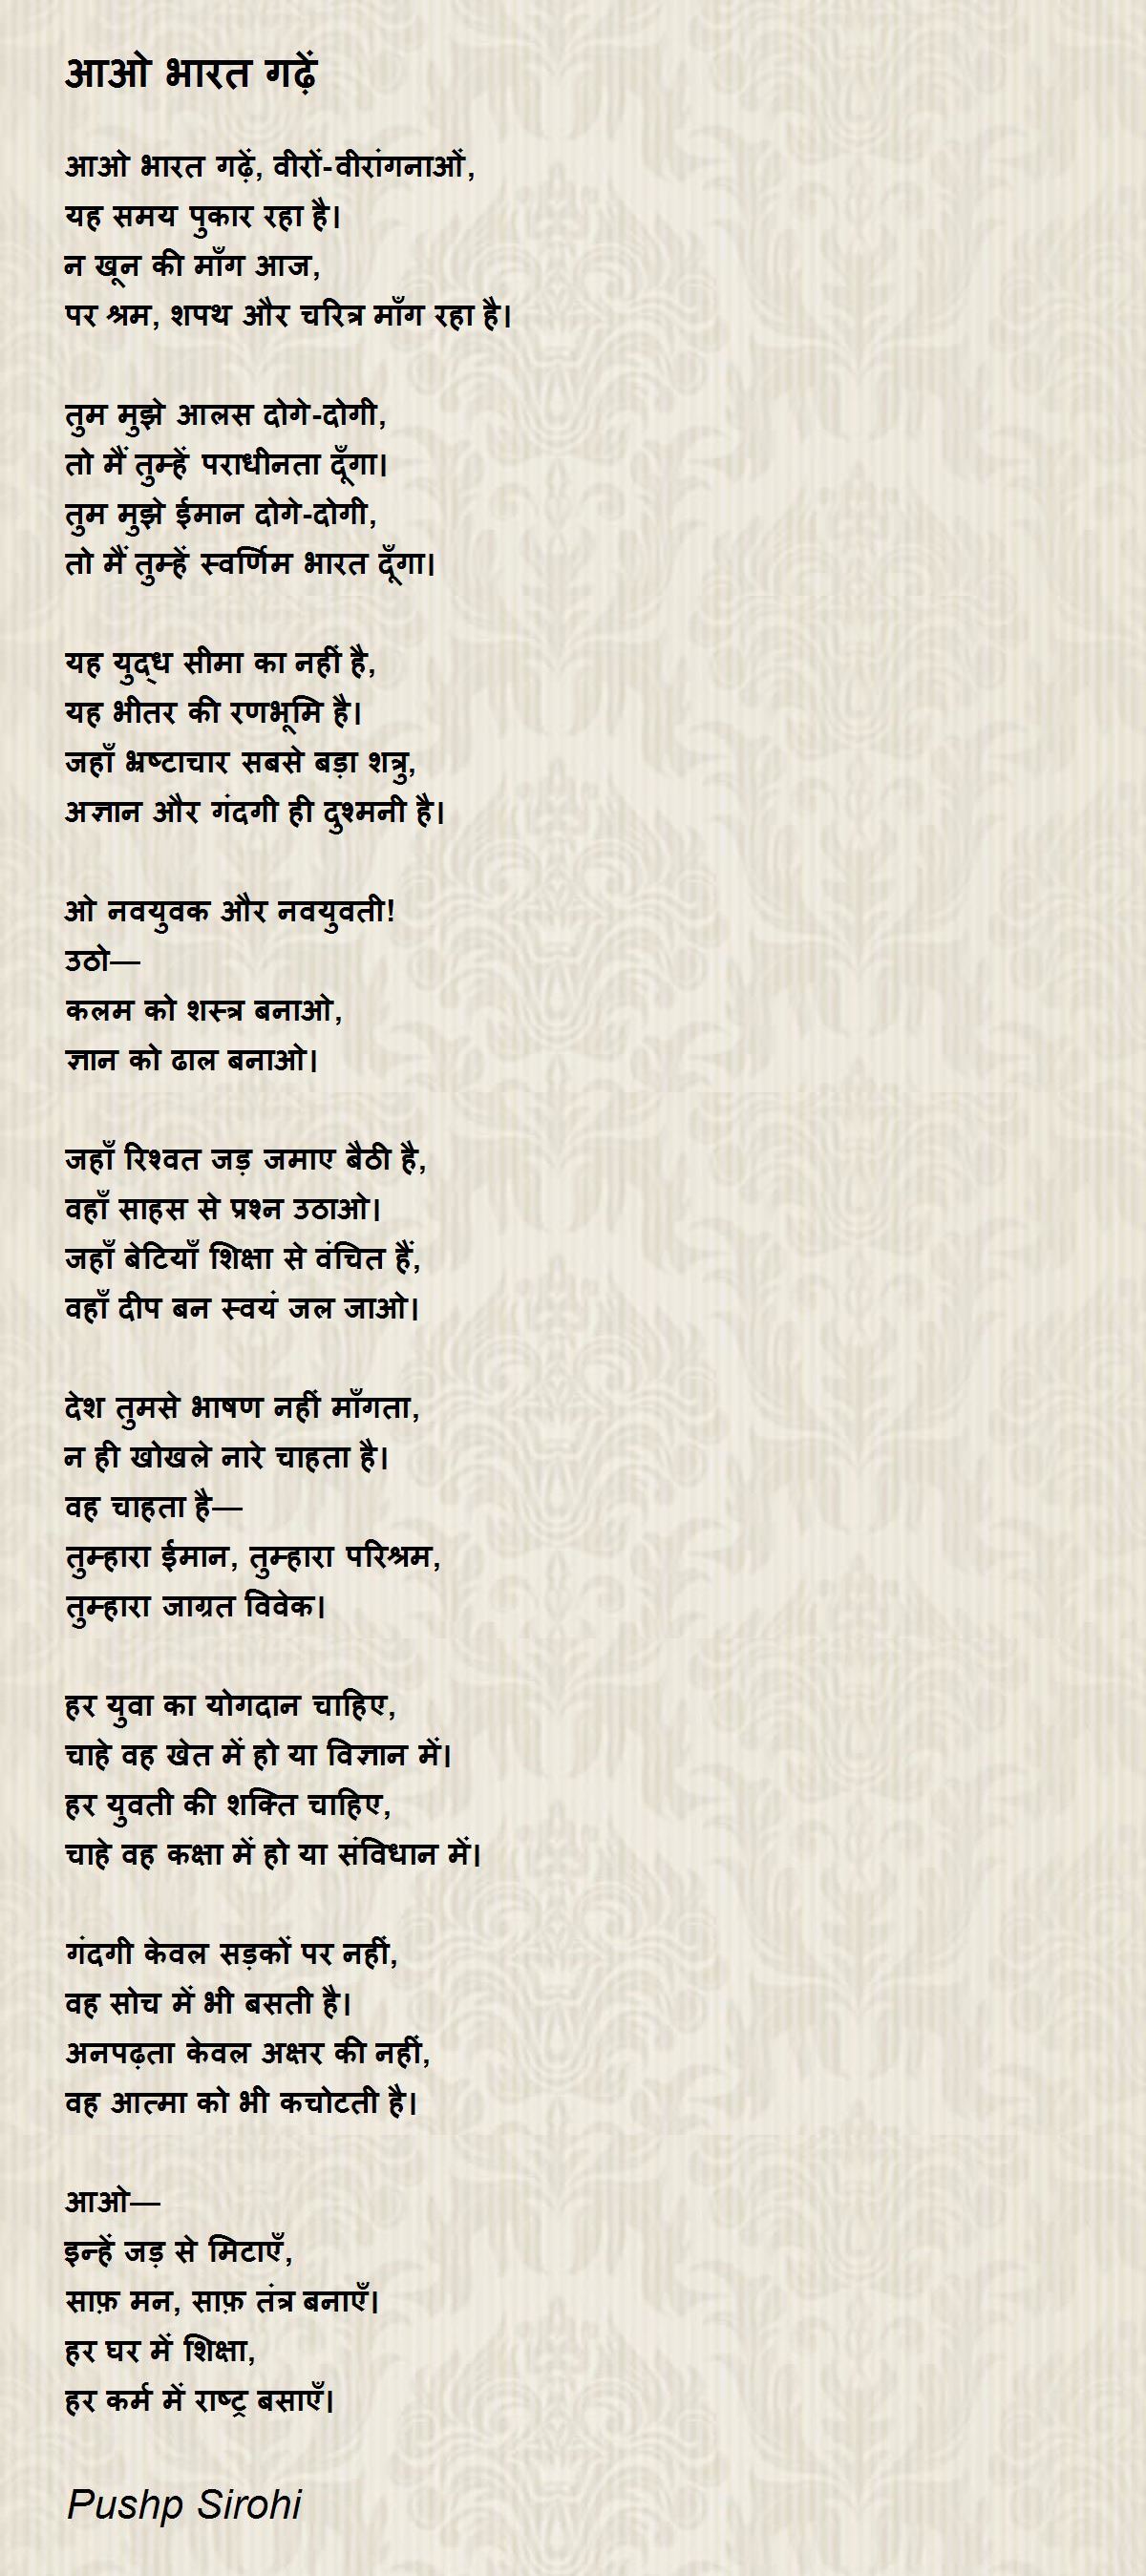 आओ भारत गढ़ें
आओ भारत गढ़ें, वीरों-वीरांगनाओं,
यह समय पुकार रहा है।
न खून की माँग आज,
पर श्रम, शपथ और चरित्र माँग रहा है।
तुम मुझे आलस दोगे-दोगी,
तो मैं तुम्हें पराधीनता दूँगा।
तुम मुझे ईमान दोगे-दोगी,
तो मैं तुम्हें स्वर्णिम भारत दूँगा।
यह युद्ध सीमा का नहीं है,
यह भीतर की रणभूमि है।
जहाँ भ्रष्टाचार सबसे बड़ा शत्रु,
अज्ञान और गंदगी ही दुश्मनी है।
ओ नवयुवक और नवयुवती!
उठो—
कलम को शस्त्र बनाओ,
ज्ञान को ढाल बनाओ।
जहाँ रिश्वत जड़ जमाए बैठी है,
वहाँ साहस से प्रश्न उठाओ।
जहाँ बेटियाँ शिक्षा से वंचित हैं,
वहाँ दीप बन स्वयं जल जाओ।
देश तुमसे भाषण नहीं माँगता,
न ही खोखले नारे चाहता है।
वह चाहता है—
तुम्हारा ईमान, तुम्हारा परिश्रम,
तुम्हारा जाग्रत विवेक।
हर युवा का योगदान चाहिए,
चाहे वह खेत में हो या विज्ञान में।
हर युवती की शक्ति चाहिए,
चाहे वह कक्षा में हो या संविधान में।
गंदगी केवल सड़कों पर नहीं,
वह सोच में भी बसती है।
अनपढ़ता केवल अक्षर की नहीं,
वह आत्मा को भी कचोटती है।
आओ—
इन्हें जड़ से मिटाएँ,
साफ़ मन, साफ़ तंत्र बनाएँ।
हर घर में शिक्षा,
हर कर्म में राष्ट्र बसाएँ।
Pushp Sirohi